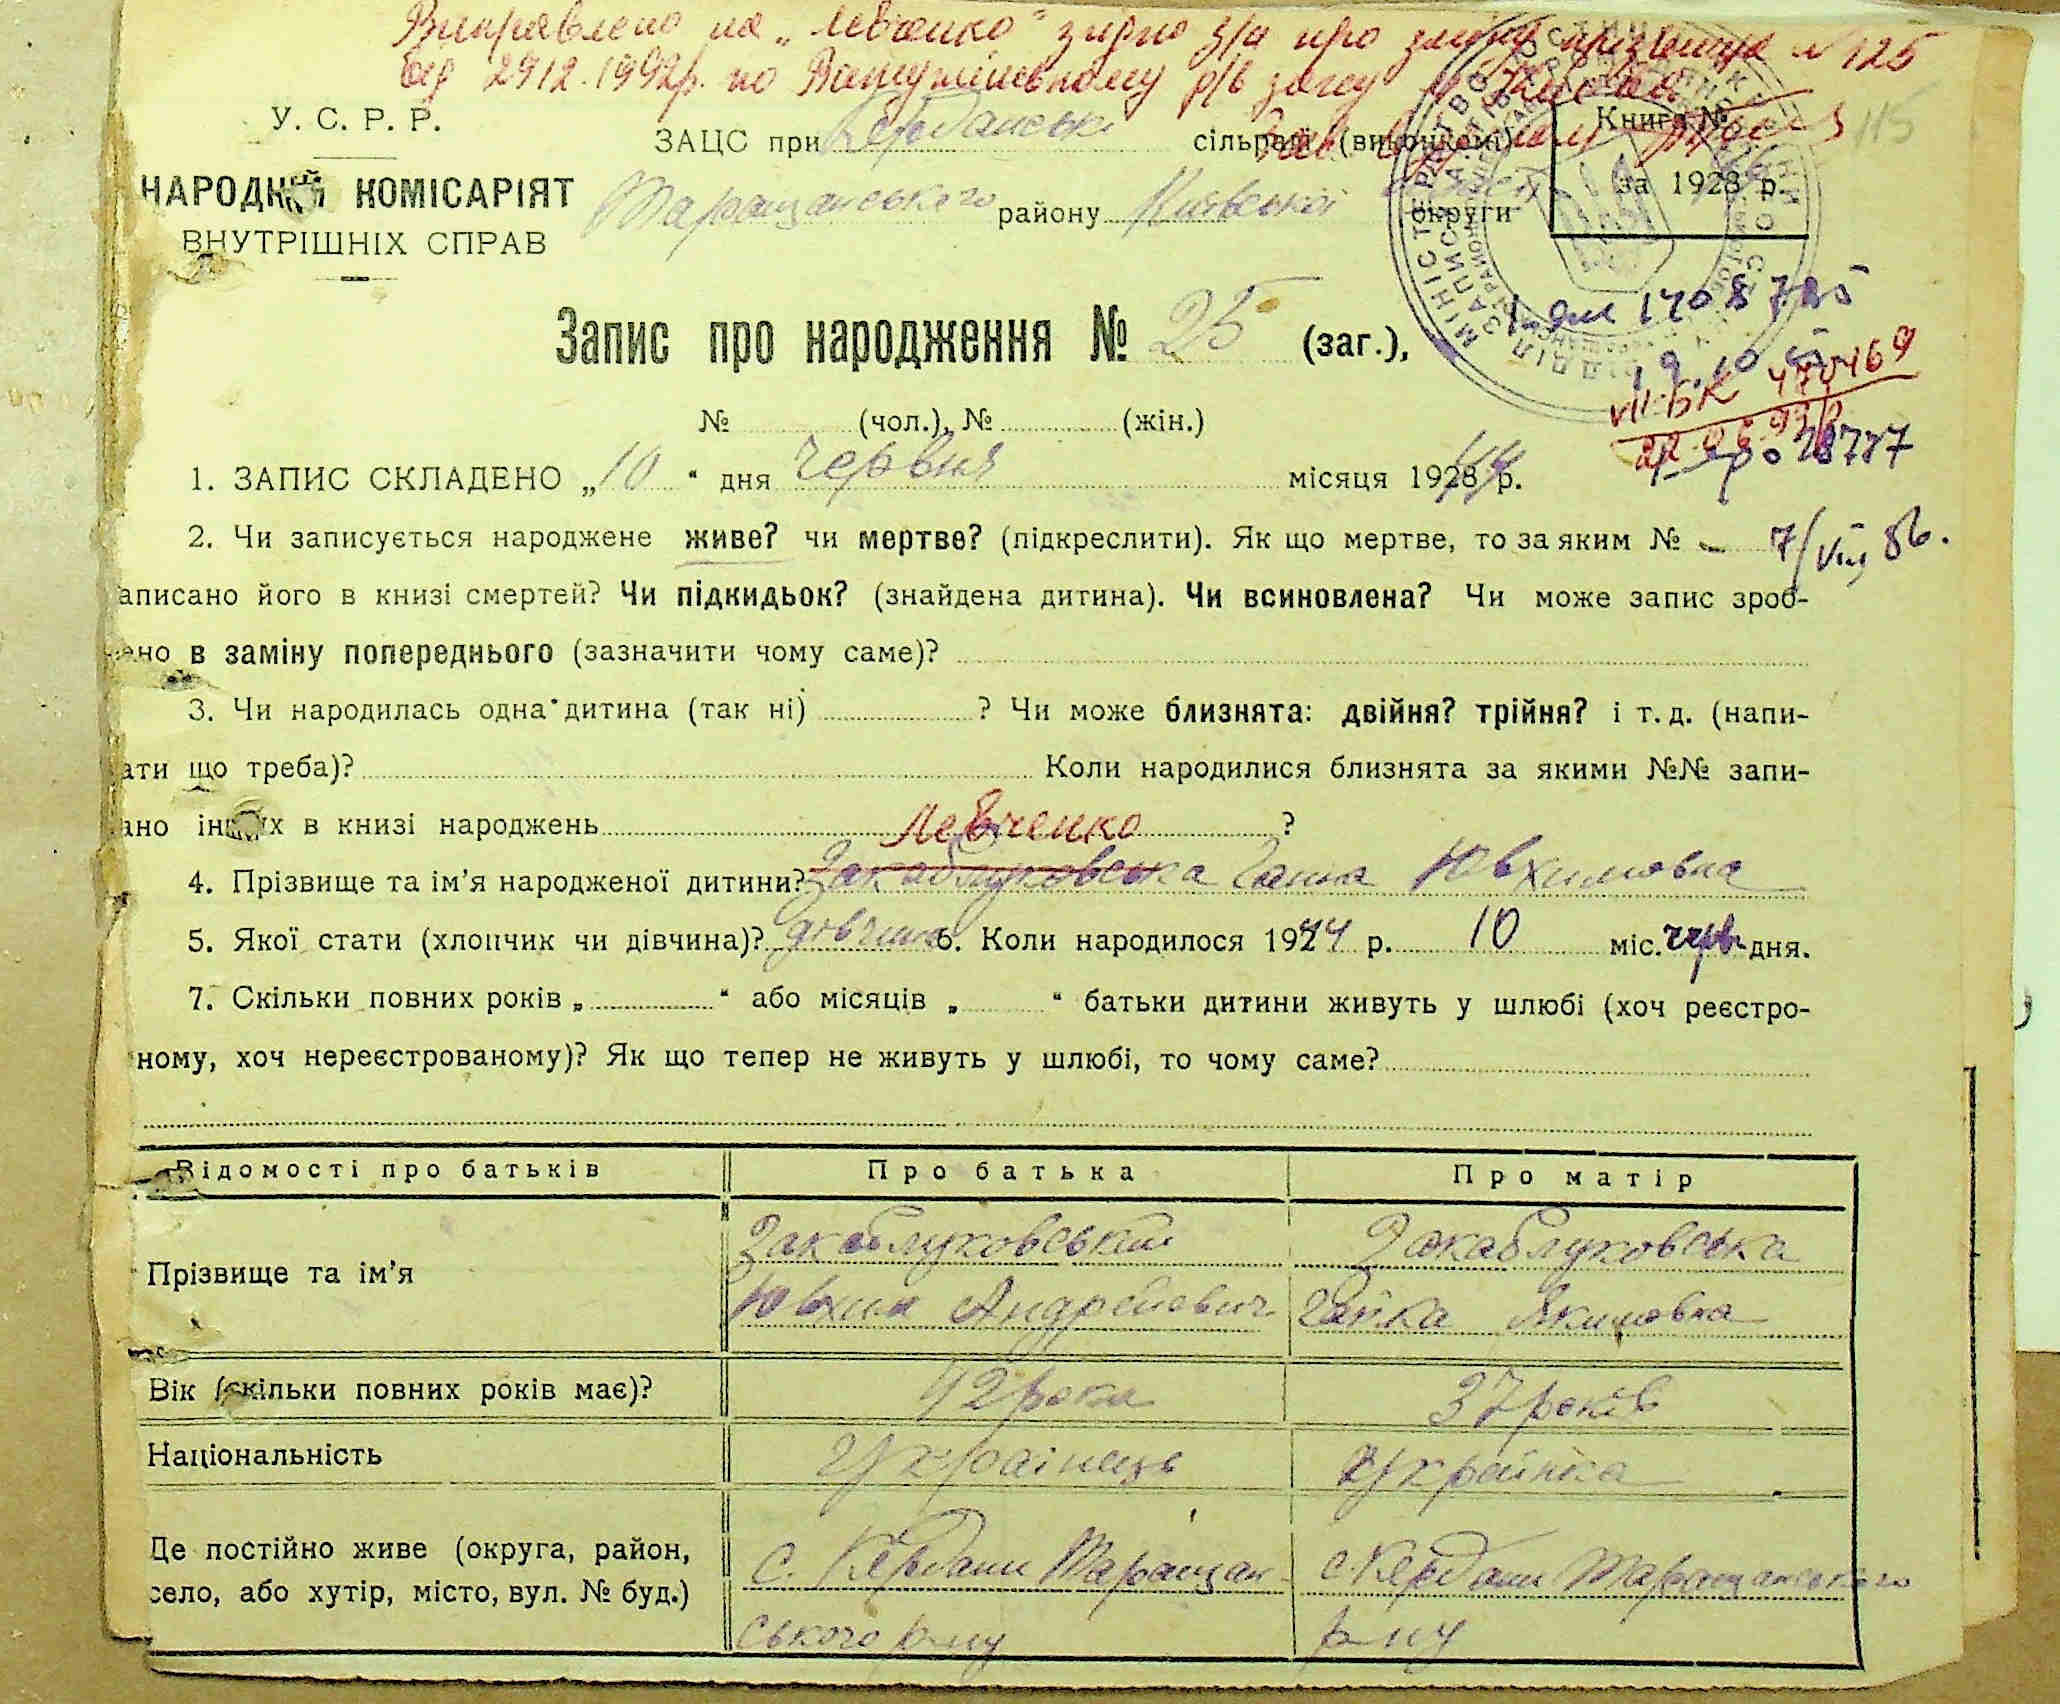 Виправлено на „Левченко" згідно з/а про зміну прізвища № 125
від 29.12.1992р. по Ватутінському р/в загсу м. Києва
У. С. Р. Р.
НАРОДНИЙ КОМІСАРІЯТ
ВНУТРІШНІХ СПРАВ
ЗАЦС при Керданські сільраді (виконкомі)
Таращанського району Київської округи
Книга №
за 1928 р.
115
Запис про народження № 25 (заг.),
№ (чол.), № (жін.)
VII-БК 470469
1. ЗАПИС СКЛАДЕНО „10" дня червня місяця 192844 р.
2. Чи записується народжене живе? чи мертве? (підкреслити). Як що мертве, то за яким № 7/VIII 86.
аписано його в книзі смертей? Чи підкидьок? (знайдена дитина). Чи всиновлена? Чи може запис зроб-
ено в заміну попереднього (зазначити чому саме)?
3. Чи народилась одна дитина (так ні) ? Чи може близнята: двійня? трійня? і т. д. (напи-
ати що треба)? Коли народилися близнята за якими №№ запи-
ано інших в книзі народжень ?
Левченко
4. Прізвище та ім'я народженої дитини? Закаблуковська Ганна Ювхимовна
5. Якої стати (хлопчик чи дівчина)? дівчина 6. Коли народилося 1944 р. 10 міс. черв дня.
7. Скільки повних років „ " або місяців „ " батьки дитини живуть у шлюбі (хоч реєстро-
ному, хоч нереєстрованому)? Як що тепер не живуть у шлюбі, то чому саме?
Відомості про батьків Про батька Про матір
Прізвище та ім'я
Закаблуковський Закаблуковська
Ювхим Андрейович Ганка Якимовна
Вік (скільки повних років має)? 42 рока 37 років
Національність Українець Українка
Де постійно живе (округа, район,
село, або хутір, місто, вул. № буд.)
с. Кердани Таращан- с. Кердани Таращанського
ського р-ну р-ну